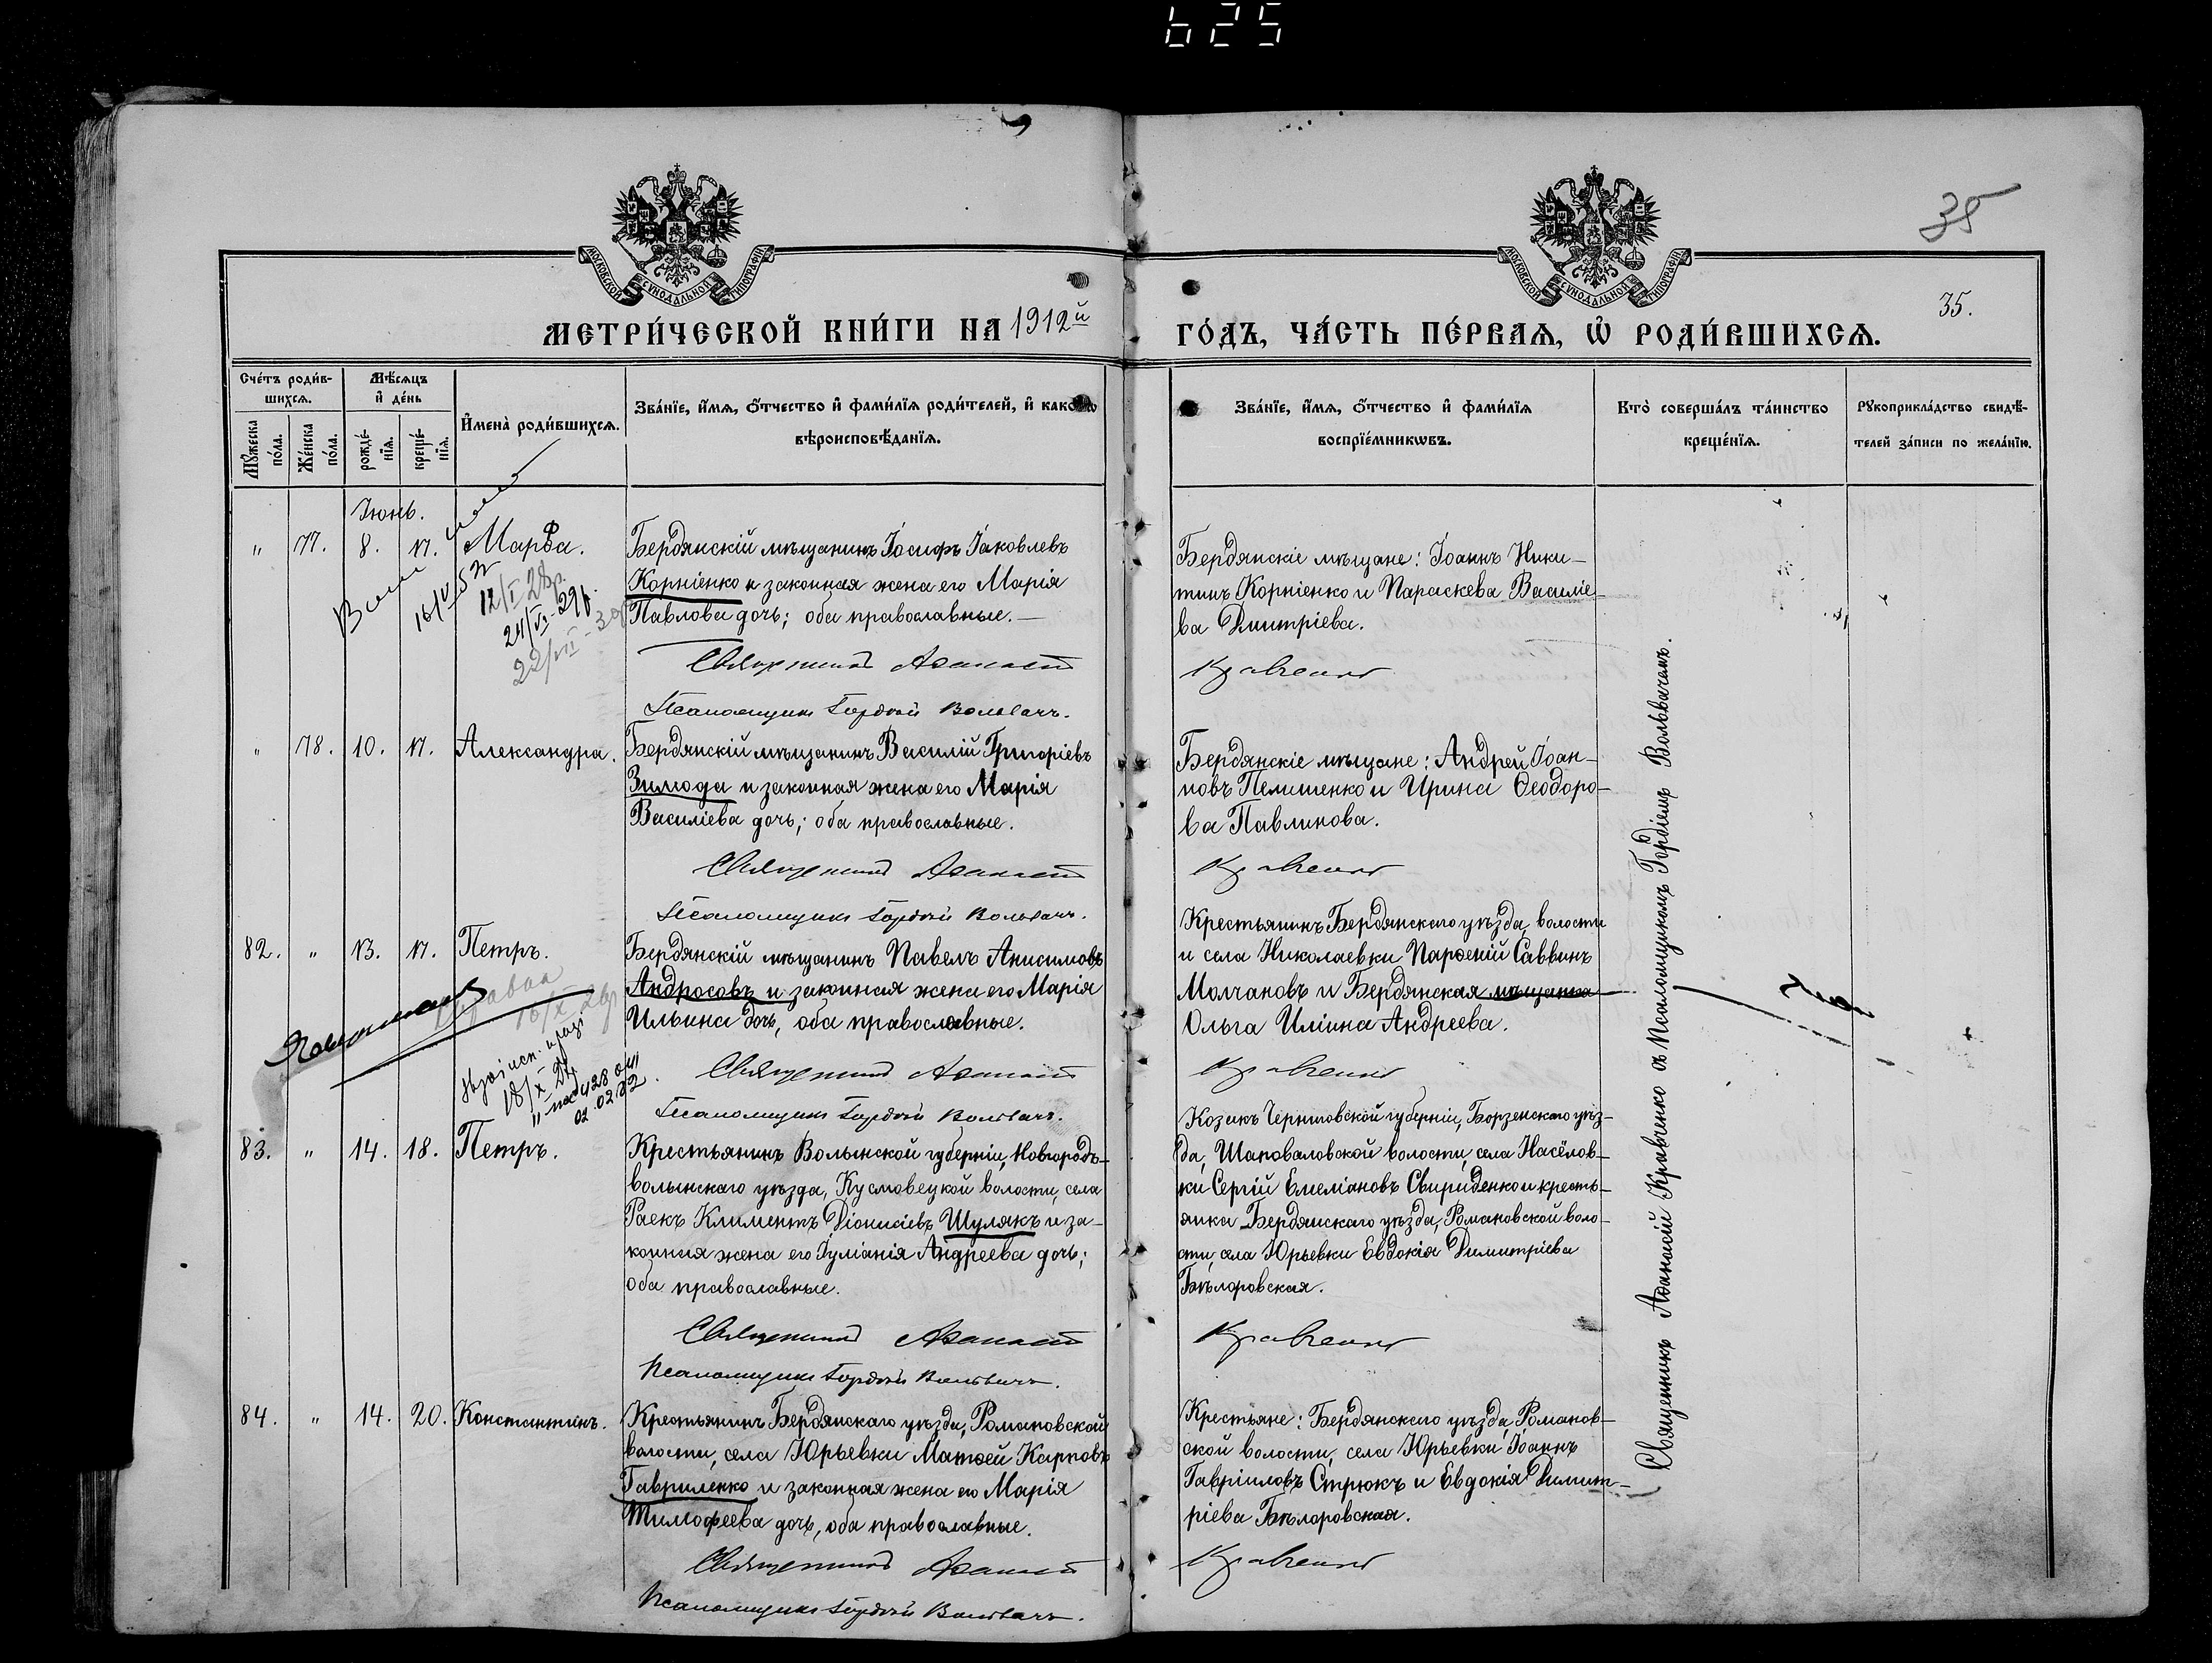 625
35
МОСКОВСКОЙ СѴНОДАЛЬНОЙ ТИПОГРАФІИ
МОСКОВСКОЙ СѴНОДАЛЬНОЙ ТИПОГРАФІИ
МЕТРИ́ЧЕСКОЙ КНИ́ГИ НА 1912й
ГО́ДЪ, ЧА́СТЬ ПЕ́РВАѦ, Ѡ҆ РОДИ́ВШИХСѦ.
35.
Сче́тъ роди́в-
шихсѧ.
Мꙋ́жеска по́ла.
Же́нска по́ла.
Мѣ́сѧцъ
и҆ де́нь
рожде́-
нїѧ.
креще́-
нїѧ.
И҆мена̀ роди́вшихсѧ.
Зва́нїе, и҆́мѧ, ѻ҆́тчество и҆ фами́лїѧ роди́телей, и҆ како́гѡ
вѣроисповѣ́данїѧ.
Зва́нїе, и҆́мѧ, ѻ҆́тчество и҆ фами́лїѧ
воспрїе́мникѡвъ.
Кто̀ соверша́лъ та́инство
креще́нїѧ.
Рꙋкоприкла́дство свидѣ́-
телей за́писи по жела́нїю.
Іюнь.
" 77. 8. 17. Марѳа.
Бердянскій мѣщанинъ Іосифъ Іаковлевъ
Корніенко и законная жена его Марія
Павлова дочь; оба православные.
12/I 28р.
24/VI-29р.
22/VII-
Священникъ Аѳанасій
Псаломщикъ Гордій Вольвачъ.
Бердянскіе мѣщане: Іоаннъ Ники-
тинъ Корніенко и Параскева Василіе-
ва Димитріева.
Кравченко
" 78. 10. 17. Александра.
Бердянскій мѣщанинъ Василій Григоріевъ
Зимода и законная жена его Марія
Василіева дочь; оба православные.
Священникъ Аѳанасій
Псаломщикъ Гордій Вольвачъ.
Бердянскіе мѣщане: Андрей Іоан-
новъ Пелишенко и Ирина Ѳеодоро-
ва Павлинова.
Кравченко
82. " 13. 17. Петръ.
Бердянскій мѣщанинъ Павелъ Анисимовъ
Андросовъ и законная жена его Марія
Ильина дочь, оба православные.
18/X
02.02.82
Священникъ Аѳанасій
Псаломщикъ Гордій Вольвачъ.
Крестьянинъ Бердянскаго уѣзда, волости
и села Николаевки Парѳеній Саввинъ
Молчановъ и Бердянская мѣщанка
Ольга Иліина Андреева.
Кравченко
83. " 14. 18. Петръ.
Крестьянинъ Волынской губерніи, Новгородъ-
волынскаго уѣзда, Кусмовецкой волости, села
Раекъ Климентъ Діонисіевъ Шулякъ и за-
конная жена его Іуліанія Андреева дочь;
оба православные.
Священникъ Аѳанасій
Псаломщикъ Гордій Вольвачъ.
Козакъ Черниговской губерніи, Борзенскаго уѣз-
да, Шаповаловской волости, села Насёлов-
ки Сергій Емеліановъ Свириденко и кресть-
янка Бердянскаго уѣзда, Романовской воло-
сти, села Юрьевки Евдокія Димитріева
Бѣлоровская.
Кравченко
84. " 14. 20. Константинъ.
Крестьянинъ Бердянскаго уѣзда, Романовской
волости, села Юрьевки Матѳей Карповъ
Гавриленко и законная жена его Марія
Тимофеева дочь, оба православные.
Священникъ Аѳанасій
Псаломщикъ Гордій Вольвачъ.
Крестьяне: Бердянскаго уѣзда, Романов-
ской волости, села Юрьевки Іоаннъ
Гавріиловъ Стрюкъ и Евдокія Димит-
ріева Бѣлоровская.
Кравченко
Священникъ Аѳанасій Кравченко съ Псаломщикомъ Гордіемъ Вольвачемъ.